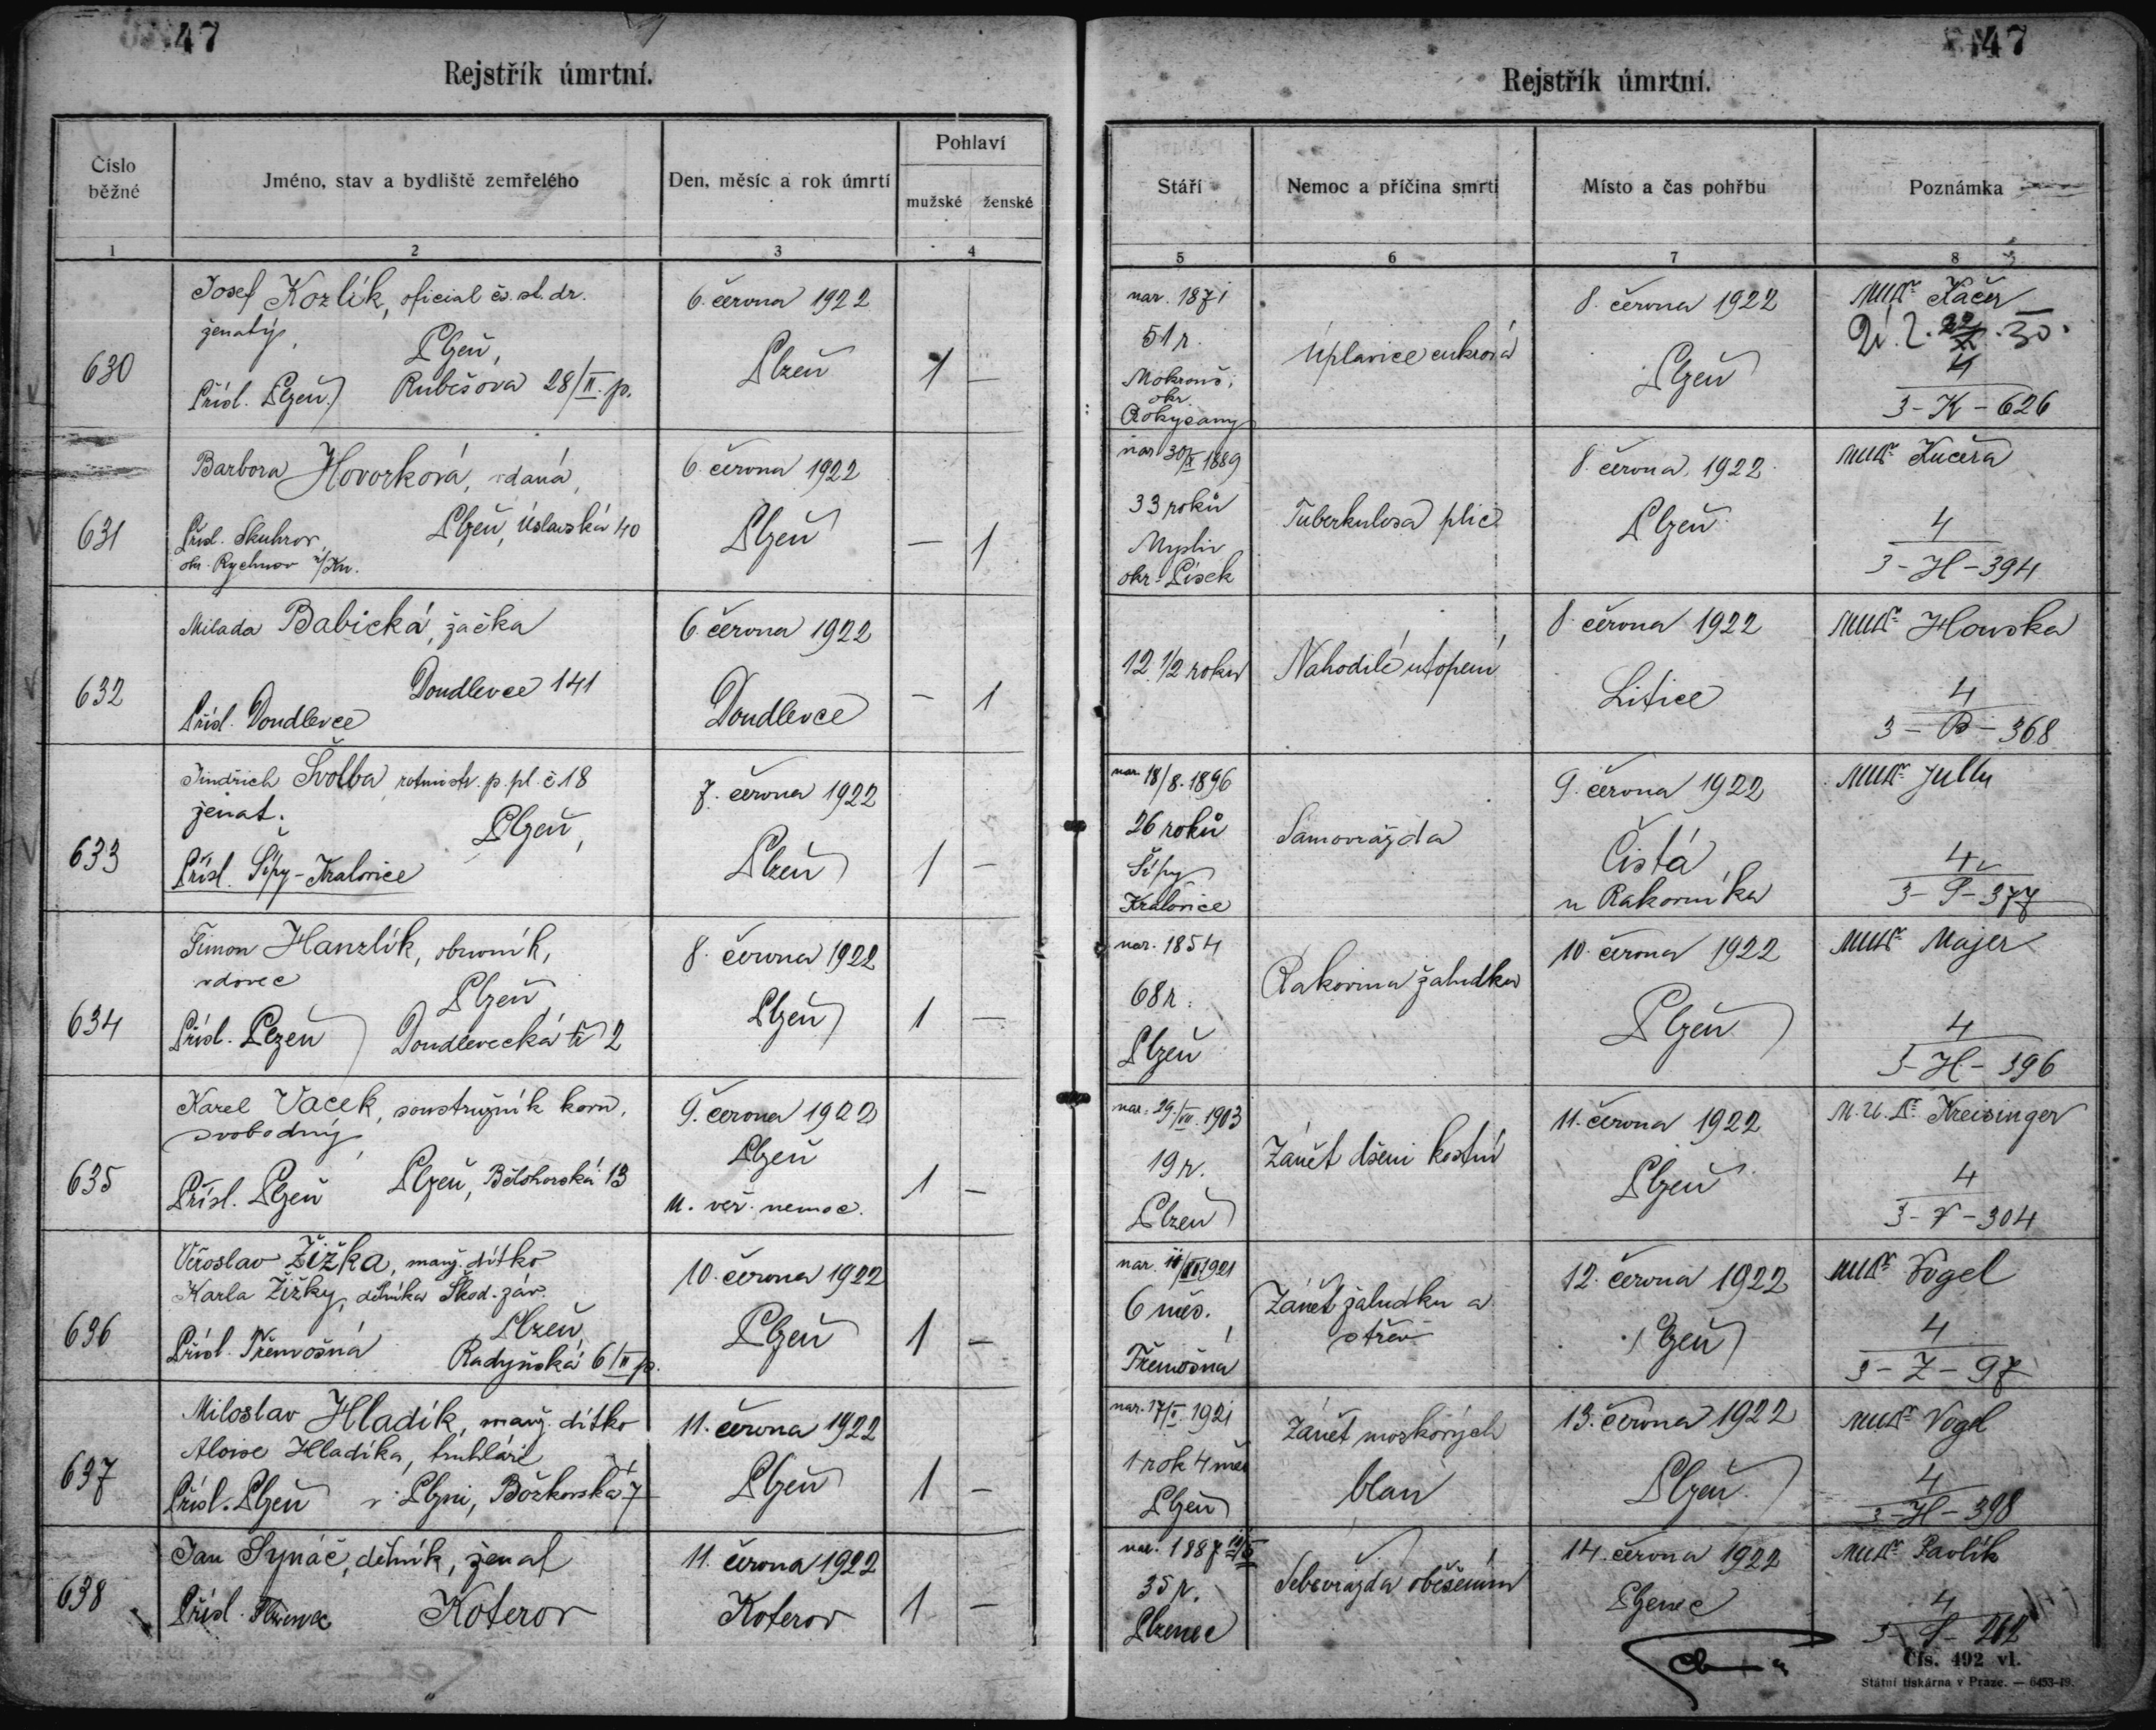 47
Rejstřík úmrtní.
Číslo běžné
Jméno, stav a bydliště zemřelého
Den, měsíc a rok úmrtí
Pohlaví
mužské ženské
1 2 3 4
630
Josef Kozlík, oficial čs. st. dr.
ženatý,
Plzeň,
Přísl. Plzeň Rubešova 28/II. p.
6. června 1922
Plzeň
1 —
631
Barbora Hovorková, vdaná,
Plzeň, Úslavská 40
Přísl. Skuhrov,
okr. Rychnov n/Kn.
6. června 1922
Plzeň
— 1
632
Milada Babická, žačka
Doudlevce 141
Přísl. Doudlevce
6. června 1922
Doudlevce
— 1
633
Jindřich Švolba, rotmistr. p. pl. č. 18
ženat.
Plzeň,
Přísl. Šípy - Kralovice
7. června 1922
Plzeň
1 —
634
Šimon Hanzlík, obuvník,
vdovec
Plzeň
Přísl. Plzeň Doudlevecká tř 2
8. června 1922
Plzeň
1 —
635
Karel Vacek, soustružník kovu,
svobodný,
Přísl. Plzeň Plzeň, Bělohorská 13
9. června 1922
Plzeň
M. veř. nemoc.
1 —
636
Věroslav Žižka, manž. dítko
Karla Žižky, dělníka Škod. záv.
Plzeň,
Přísl. Třemošná Radyňská 6/II p.
10. června 1922
Plzeň
1 —
637
Miloslav Hladík, manž. dítko
Aloise Hladíka, truhláře
Přísl. Plzeň v Plzni, Božkovská 7
11. června 1922
Plzeň
1 —
638
Jan Synáč, dělník, ženat
Přísl. Plzenec Koterov
11. června 1922
Koterov
1 —
47
Rejstřík úmrtní.
Stáří
Nemoc a příčina smrti
Místo a čas pohřbu
Poznámka
5 6 7 8
nar. 1871
51 r.
Mokrouš,
okr.
Rokycany
Úplavice cukrová
8. června 1922
Plzeň
MUDr Kačer
4
3 - K - 626
nar 30/ 1889
33 roků
Mysliv
okr. Písek
Tuberkulosa plic
8. června 1922
Plzeň
MUDr Kučera
4
3 - H - 394
12 1/2 roku
Nahodilé utopení
8. června 1922
Litice
MUDr Houska
4
3 - B - 368
nar. 18/8. 1896
26 roků
Šípy
Kralovice
Samovražda
9. června 1922
Čistá
u Rakovníka
MUDr
4
3 - S - 377
nar. 1854
68 r.
Plzeň
Rakovina žaludku
10. června 1922
Plzeň
MUDr Majer
4
3 - H - 396
nar. 29./VII. 1903
19 r.
Plzeň
Zánět dřeni kostní
11. června 1922
Plzeň
M.U.Dr. Kreisinger
4
3 - V - 304
nar. 1921
6 měs.
Třemošna
Zánět žaludku a
střev
12. června 1922
Plzeň
MUDr Vogel
4
3 - Z - 97
nar. 17/I. 1921
1 rok 4 měs
Plzeň
Zánět mozkových
blan
13. června 1922
Plzeň
MUDr Vogel
4
3 - H - 398
nar. 1887
35 r.
Plzenec
Sebevražda oběšením
14. června 1922
Plzenec
MUDr Pavlík
4
3 - S - 262
Čís. 492 vl.
Státní tiskárna v Praze. — 6453-19.